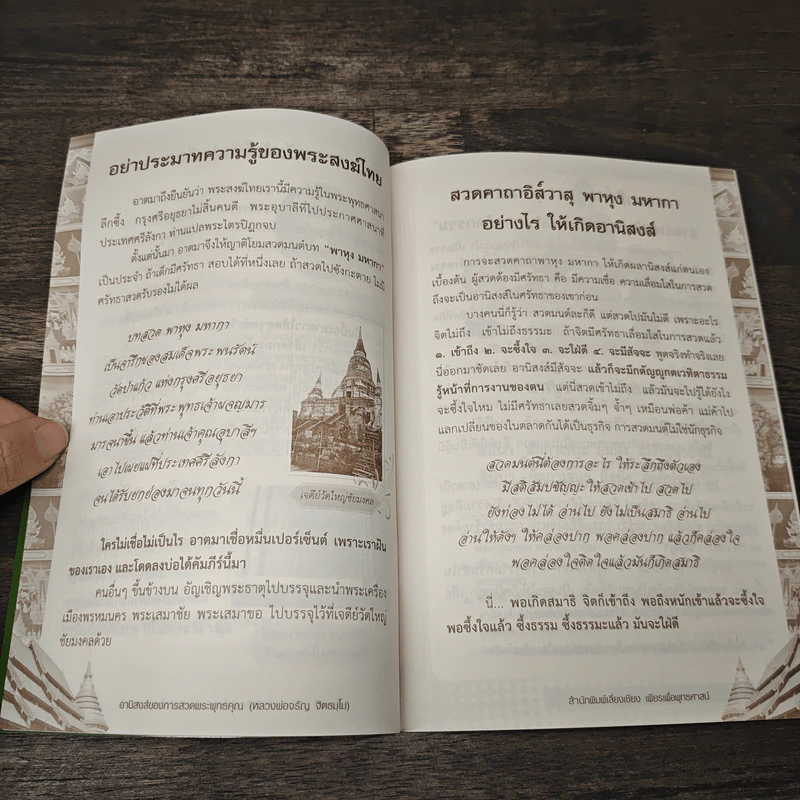 อย่าประมาทความรู้ของพระสงฆ์ไทย
อาตมาถึงยืนยันว่า พระสงฆ์ไทยเรานี้มีความรู้ในพระพุทธศาสนา
ลึกซึ้ง กรุงศรีอยุธยาไม่สิ้นคนดี พระอุบาลีที่ไปประกาศศาสนาที่
ประเทศศรีลังกา ท่านแปลพระไตรปิฎกจบ
ตั้งแต่นั้นมา อาตมาจึงให้ญาติโยมสวดมนต์บท "พาหุง มหากา"
เป็นประจำ ถ้าเด็กมีศรัทธา สอบได้ที่หนึ่งเลย ถ้าสวดไปซังกะตาย ไม่มี
ศรัทธาสวดรับรองไม่ได้ผล
บทสวด พาหุง มหากา
เป็นจารึกของสมเด็จพระพนรัตน์
วัดป่าแก้ว แห่งกรุงศรีอยุธยา
ท่านเอาประวัติที่พระพุทธเจ้าผจญมาร
มารจนาขึ้น แล้วท่านเจ้าคุณอุบาลีฯ
เอาไปเผยแผ่ที่ประเทศศรีลังกา
จนได้รับยกย่องมาจนทุกวันนี้
เจดีย์วัดใหญ่ชัยมงคล
ใครไม่เชื่อไม่เป็นไร อาตมาเชื่อหมื่นเปอร์เซ็นต์ เพราะเราฝัน
ของเราเอง และโดดลงบ่อได้คัมภีร์นี้มา
คนอื่นๆ ขึ้นข้างบน อัญเชิญพระธาตุไปบรรจุและนำพระเครื่อง
เมืองพรหมนคร พระเสมาชัย พระเสมาขอ ไปบรรจุไว้ที่เจดีย์วัดใหญ่
ชัยมงคลด้วย
อานิสงส์ของการสวดพระพุทธคุณ (หลวงพ่อจรัญ ฐิตธมฺโม)
สวดคาถาอิส์วาสุ พาหุง มหากา
อย่างไร ให้เกิดอานิสงส์
การจะสวดคาถาพาหุง มหากา ให้เกิดผลานิสงส์แก่ตนเอง
เบื้องต้น ผู้สวดต้องมีศรัทธา คือ มีความเชื่อ ความเลื่อมใสในการสวด
ถึงจะเป็นอานิสงส์ในศรัทธาของเขาก่อน
บางคนนี่ก็รู้ว่า สวดมนต์ละก็ดี แต่สวดไปมันไม่ดี เพราะอะไร
จิตไม่ถึง เข้าไม่ถึงธรรมะ ถ้าจิตมีศรัทธาเลื่อมใสในการสวดแล้ว
๑. เข้าถึง ๒. จะซึ้งใจ ๓. จะใฝ่ดี ๔. จะมีสัจจะ พูดจริงทำจริงเลย
นี่ออกมาชัดเลย อานิสงส์มีสัจจะ แล้วก็จะมีกตัญญูกตเวทิตาธรรม
รู้หน้าที่การงานของตน แต่นี่สวดเข้าไม่ถึง แล้วมันจะไปรู้ได้ยังไง
จะซึ้งใจไหม ไม่มีศรัทธาเลยสวดจิ้มๆ จ้ำๆ เหมือนพ่อค้า แม่ค้าไป
แลกเปลี่ยนของในตลาดกันได้เป็นธุรกิจ การสวดมนต์ไม่ใช่นักธุรกิจ
สวดมนต์นี่ต้องการอะไร ให้ระลึกถึงตัวเอง
มีสติสัมปชัญญะ ให้สวดเข้าไป สวดไป
ยังท่องไม่ได้ อ่านไป ยังไม่เป็นสมาธิ อ่านไป
อ่านให้ดังๆ ให้คล่องปาก พอคล่องปาก แล้วก็คล่องใจ
พอคล่องใจติดใจแล้วมันก็เกิดสมาธิ
นี่... พอเกิดสมาธิ จิตก็เข้าถึง พอถึงหนักเข้าแล้วจะซึ้งใจ
พอซึ้งใจแล้ว ซึ้งธรรม ซึ้งธรรมะแล้ว มันจะใฝ่ดี
สำนักพิมพ์เลี่ยงเชียง เพียรเพื่อพุทธศาสน์